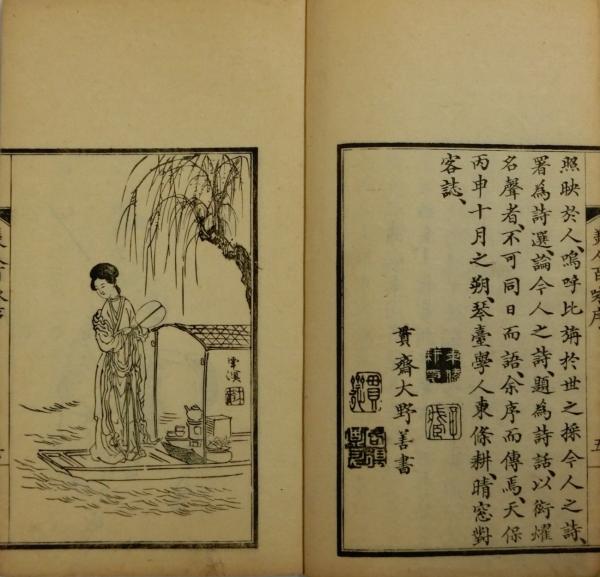 照映於人、嗚呼比旃於世之採今人之詩、
署為詩選、論今人之詩、題為詩話、以衒燿
名聲者、不可同日而語、余序而傳焉、天保
丙申十月之朔、琴臺學人東條耕、晴窓對
客誌、
貫齋大野善書